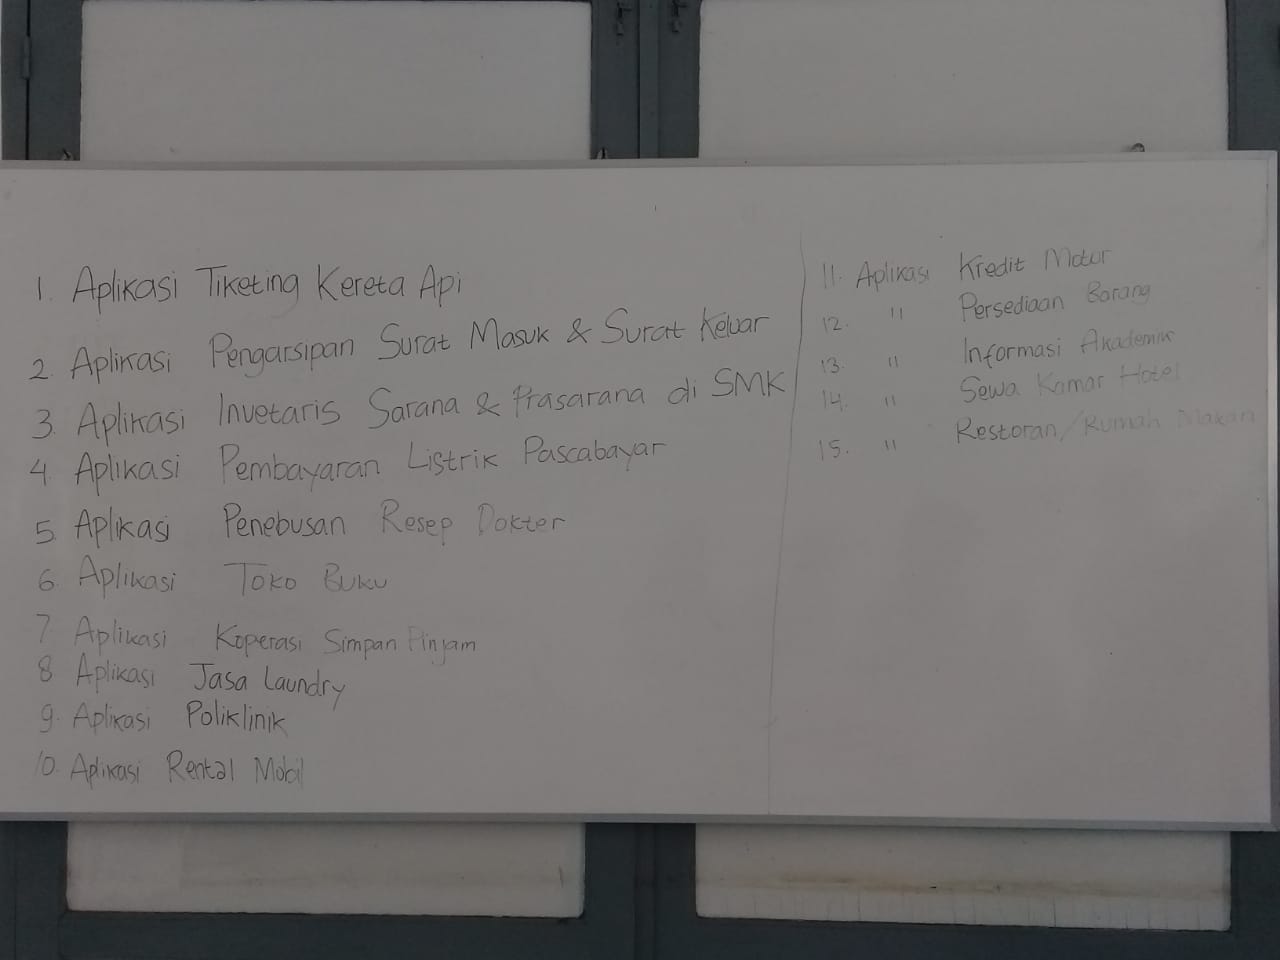 1. Aplikasi Tiketing Kereta Api
2. Aplikasi Pengarsipan Surat Masuk & Surat Keluar
3. Aplikasi Invetaris Sarana & Prasarana di SMK
4. Aplikasi Pembayaran Listrik Pascabayar
5. Aplikasi Penebusan Resep Dokter
6. Aplikasi Toko Buku
7 Aplikasi Koperasi Simpan Pinjam
8 Aplikasi Jasa Laundry
9. Aplikasi Poliklinik
10. Aplikasi Rental Mobil
11. Aplikasi Kredit Motor
12. " Persediaan Barang
13. " Informasi Akademik
14. " Sewa Kamar Hotel
15. " Restoran/Rumah Makan